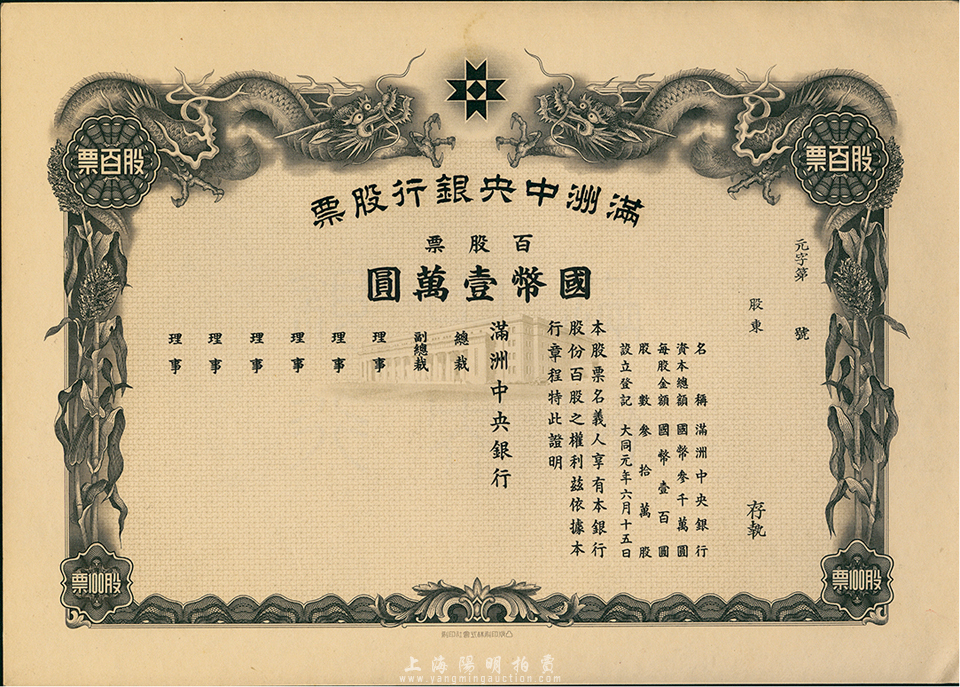 股百票
股百票
滿洲中央銀行股票
百股票
國幣壹萬圓
元字第 號
股東 存執
名稱 滿洲中央銀行
資本總額 國幣參千萬圓
每股金額 國幣壹百圓
股數 參拾萬股
設立登記 大同元年六月十五日
本股票名義人享有本銀行
股份百股之權利茲依據本
行章程特此證明
滿洲中央銀行
總裁
副總裁
理事
理事
理事
理事
理事
理事
股100票
股100票
凸版印刷株式會社印刷
上海陽明拍賣
www.yangmingauction.com